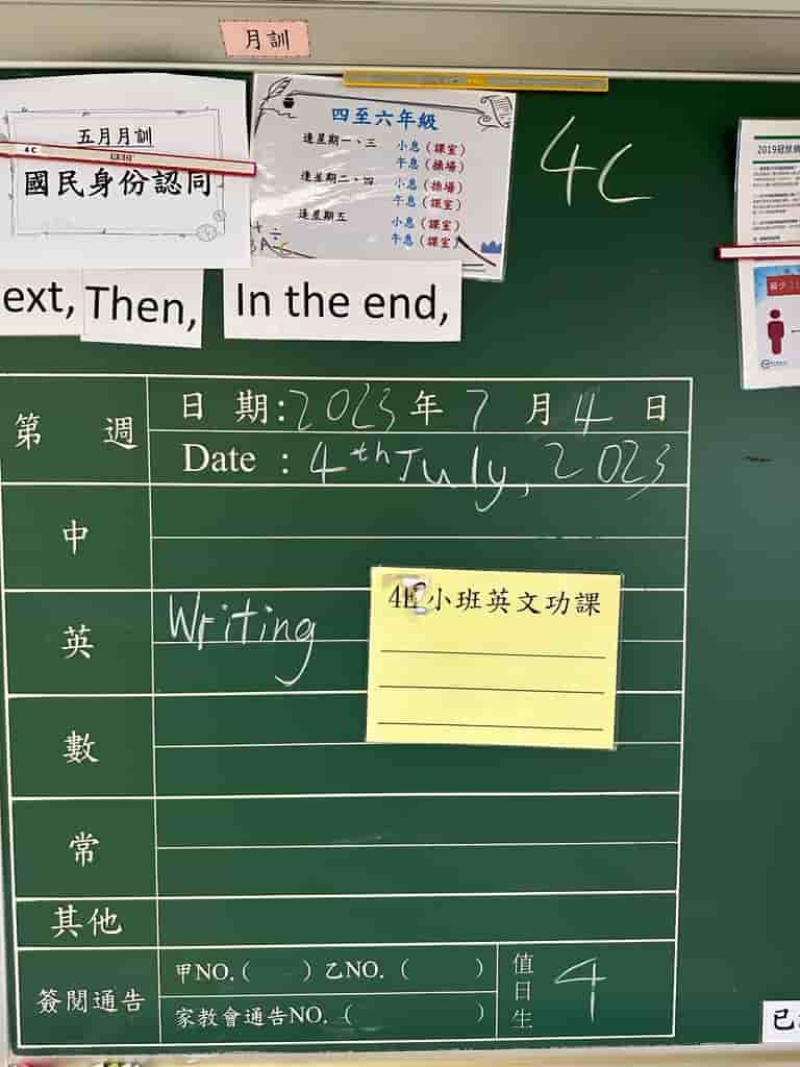 月訓
五月月訓
4C
國民身份認同
四至六年級
逢星期一、三 小息（課室）
午息（操場）
逢星期二、四 小息（操場）
午息（課室）
逢星期五 小息（課室）
午息（課室）
4C
ext, Then, In the end,
第 週
日 期:2023年 7 月 4 日
Date : 4th July, 2023
中
英 Writing
小班英文功課
數
常
其他
簽閱通告
甲NO.( ) 乙NO. ( )
家教會通告NO. ( )
值日生 4
已